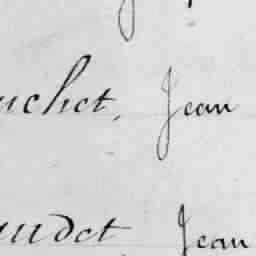 uchet, Jean
udet Jean